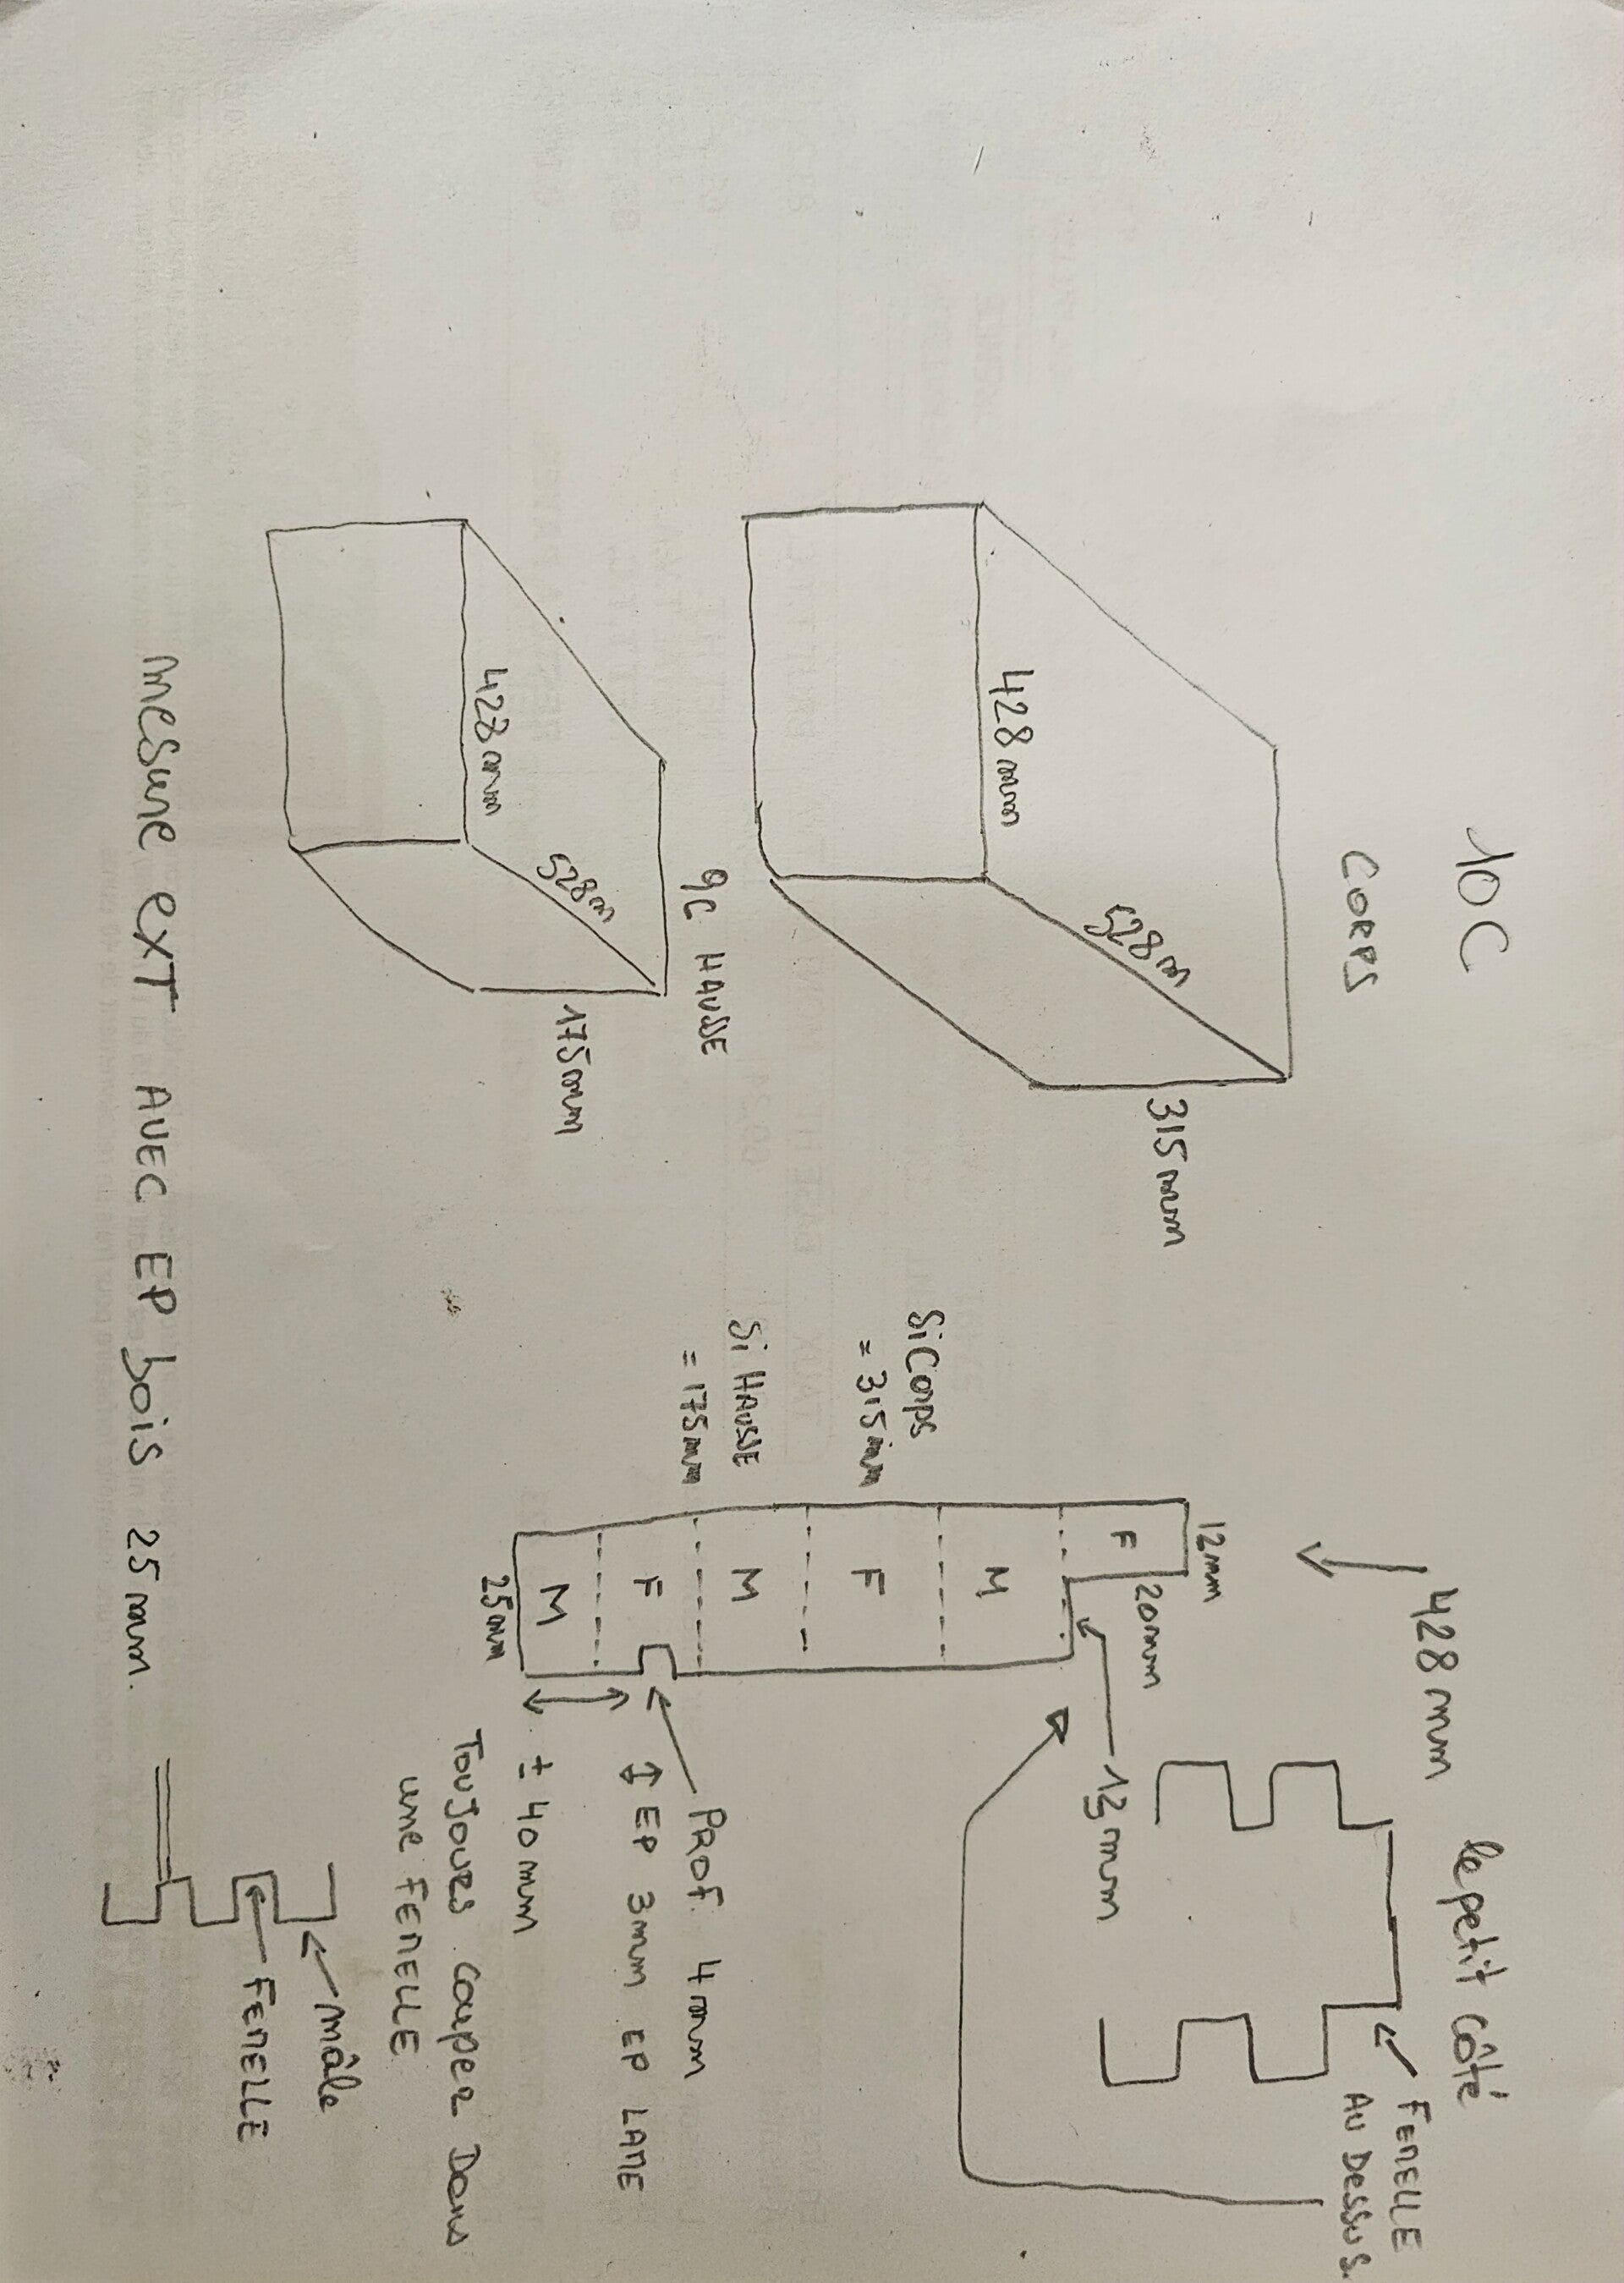 10C
CORPS
428mm
528m
315mm
9C HAUSSE
428mm
528m
175mm
mesure exT AVEC EP bois 25mm.
428mm le petit côté
FEMELLE
AU DESSUS.
12mm
20mm
13mm
F
M
F
M
F
M
25mm
Si Corps
= 315mm
Si HAUSSE
= 175mm
PROF. 4mm
EP 3mm EP LAME
± 40mm
TouJours couper Dans
une FEMELLE
mâle
FEMELLE